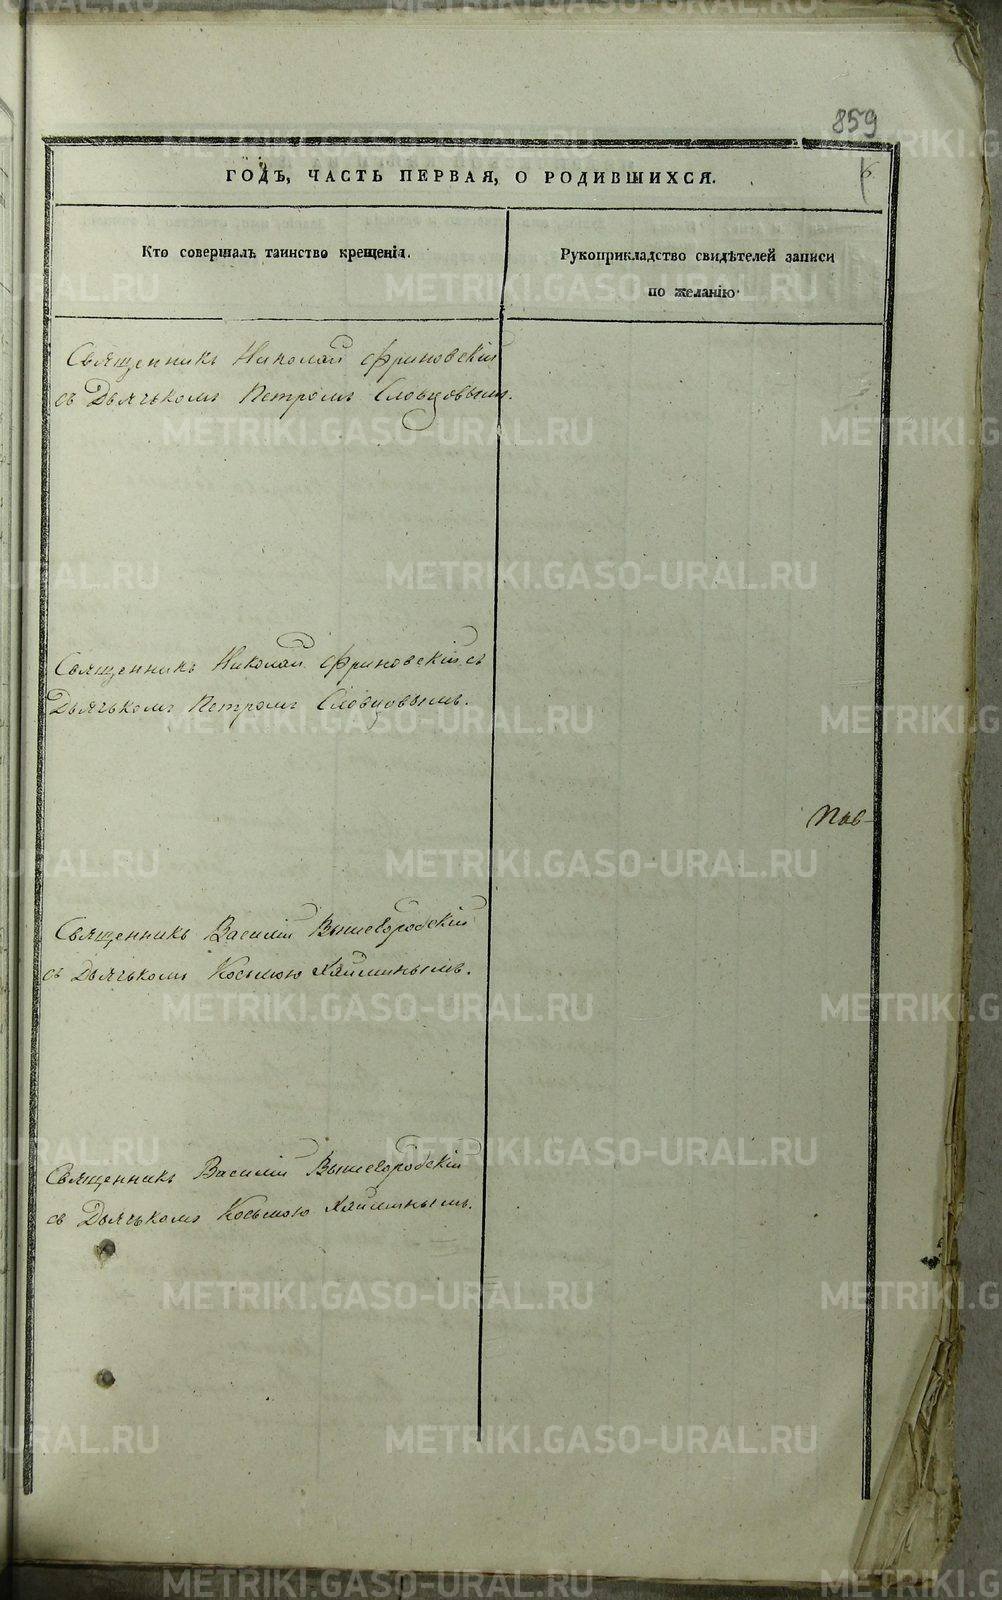 859
6
ГОДЪ, ЧАСТЬ ПЕРВАЯ, О РОДИВШИХСЯ.
Кто совершалъ таинство крещенія.
Рукоприкладство свидѣтелей записи
по желанію
Священникъ Николай Фриновскій
съ Дьячькомъ Петромъ Словцовымъ.
Священникъ Николай Фриновскій съ
Дьячькомъ Петромъ Словцовымъ.
Священникъ Василій Вышегородскій
съ Дьячькомъ Косьмою Хяйминымъ.
Священникъ Василій Вышегородскій
съ Дьячькомъ Косьмою Хяйминымъ.
METRIKI.GASO-URAL.RU